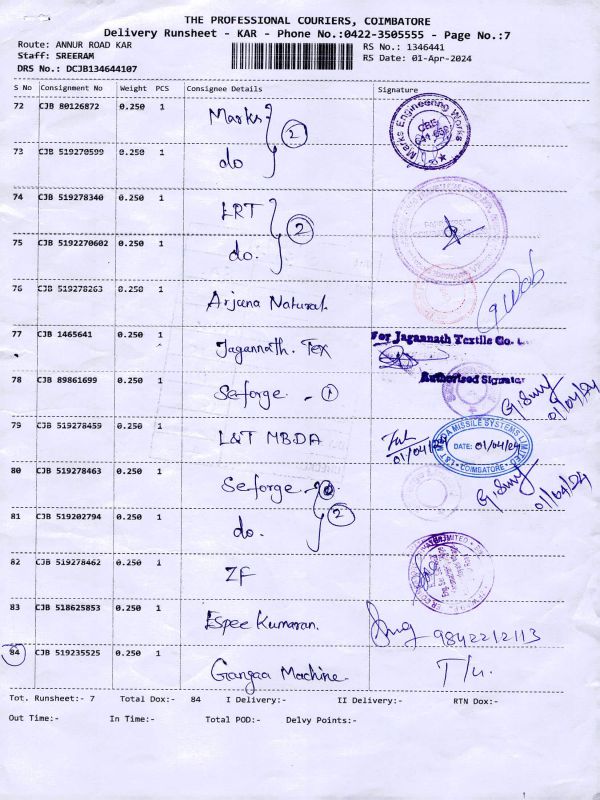 THE PROFESSIONAL COURIERS, COIMBATORE
Delivery Runsheet - KAR - Phone No.:0422-3505555 - Page No.:7
Route: ANNUR ROAD KAR
RS No.: 1346441
Staff: SREERAM
RS Date: 01-Apr-2024
DRS No.: DCJB134644107
S No Consignment No Weight PCS Consignee Details Signature
72 CJB 80126872 0.250 1 Marks 2
Marks Engineering Works
73 CJB 519270599 0.250 1 do
74 CJB 519278340 0.250 1 LRT 2
75 CJB 5192270602 0.250 1 do.
76 CJB 519278263 0.250 1 Arjuna Natural
77 CJB 1465641 0.250 1 Jagannath. Tex
For Jagannath Textile Co.
Authorised Signator
78 CJB 89861699 0.250 1 Seforge - 1
01/04/24
79 CJB 519278459 0.250 1 L&T MBDA
01/04/24
L&T MBDA MISSILE SYSTEMS LIMITED
DATE: 01/04/24
COIMBATORE
80 CJB 519278463 0.250 1 Seforge - 2
01/04/24
81 CJB 519202794 0.250 1 do.
82 CJB 519278462 0.250 1 ZF
83 CJB 518625853 0.250 1 Espee Kumaran.
9842212113
84 CJB 519235525 0.250 1 Gangaa Machine. T/u.
Tot. Runsheet:- 7 Total Dox:- 84 I Delivery:- II Delivery:- RTN Dox:-
Out Time:- In Time:- Total POD:- Delvy Points:-